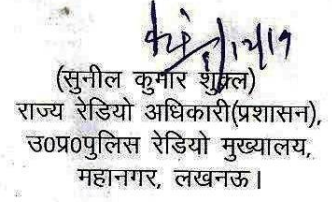 (सुनील कुमार शुक्ल)
राज्य रेडियो अधिकारी(प्रशासन),
उ0प्र0पुलिस रेडियो मुख्यालय,
महानगर, लखनऊ।